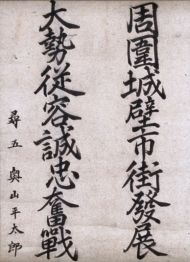 周圍城壁市街發展
大勢從容誠忠奮戰
尋五 奥山平太郎